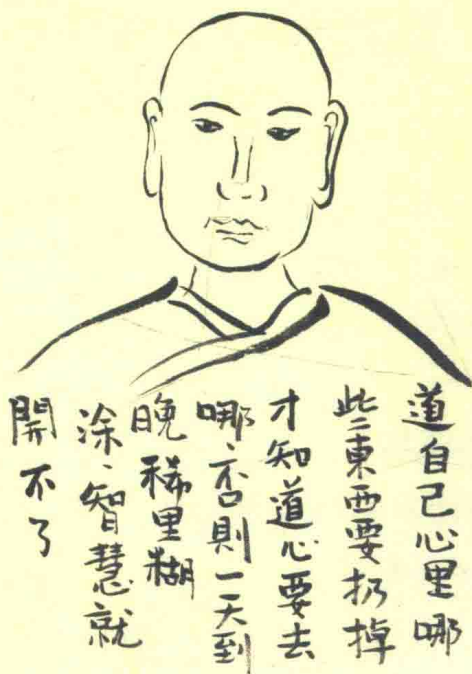 道自己心里哪
些東西要扔掉
才知道心要去
哪、否則一天到
晚稀里糊
涂、智慧就
開不了